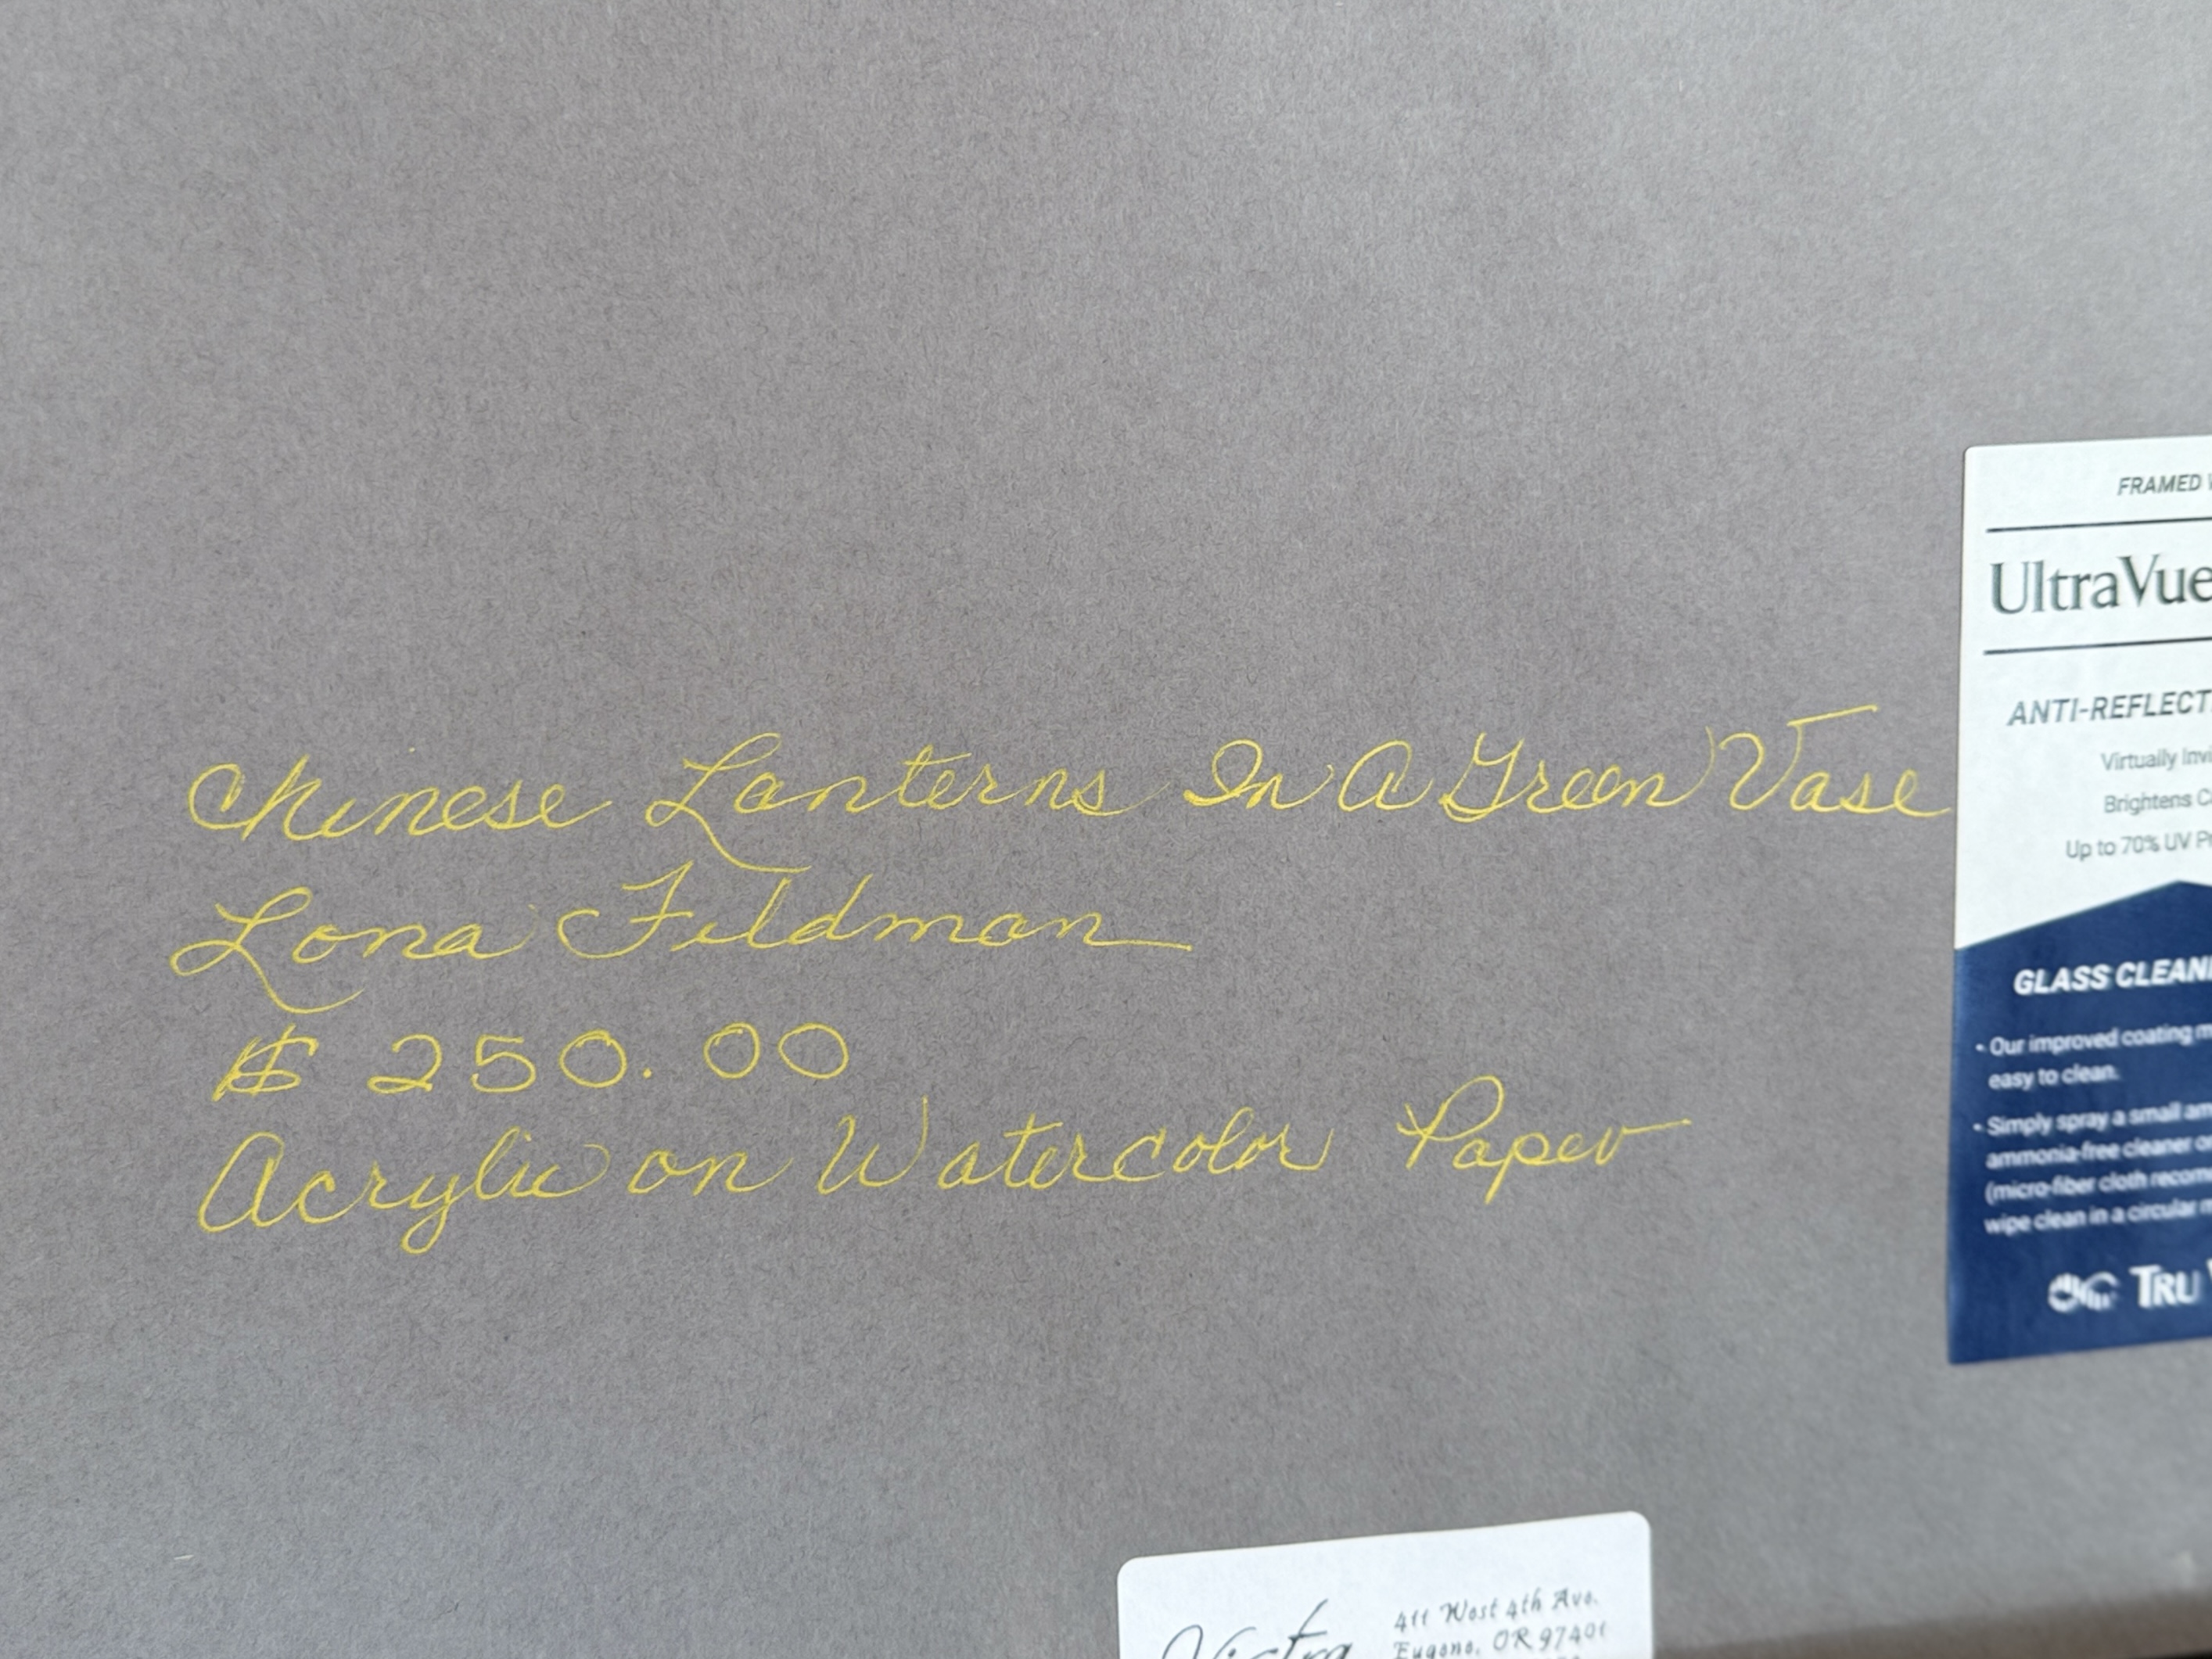 Chinese Lanterns In A Green Vase
Lona Feldman
$ 250.00
Acrylic on Watercolor Paper
FRAMED
UltraVue
ANTI-REFLECT
Virtually Invi
Brightens C
Up to 70% UV P
GLASS CLEAN
• Our improved coating m
easy to clean.
• Simply spray a small am
ammonia-free cleaner o
(micro-fiber cloth recom
wipe clean in a circular m
TRU
Vistra
411 West 4th Ave.
Eugene, OR 97401